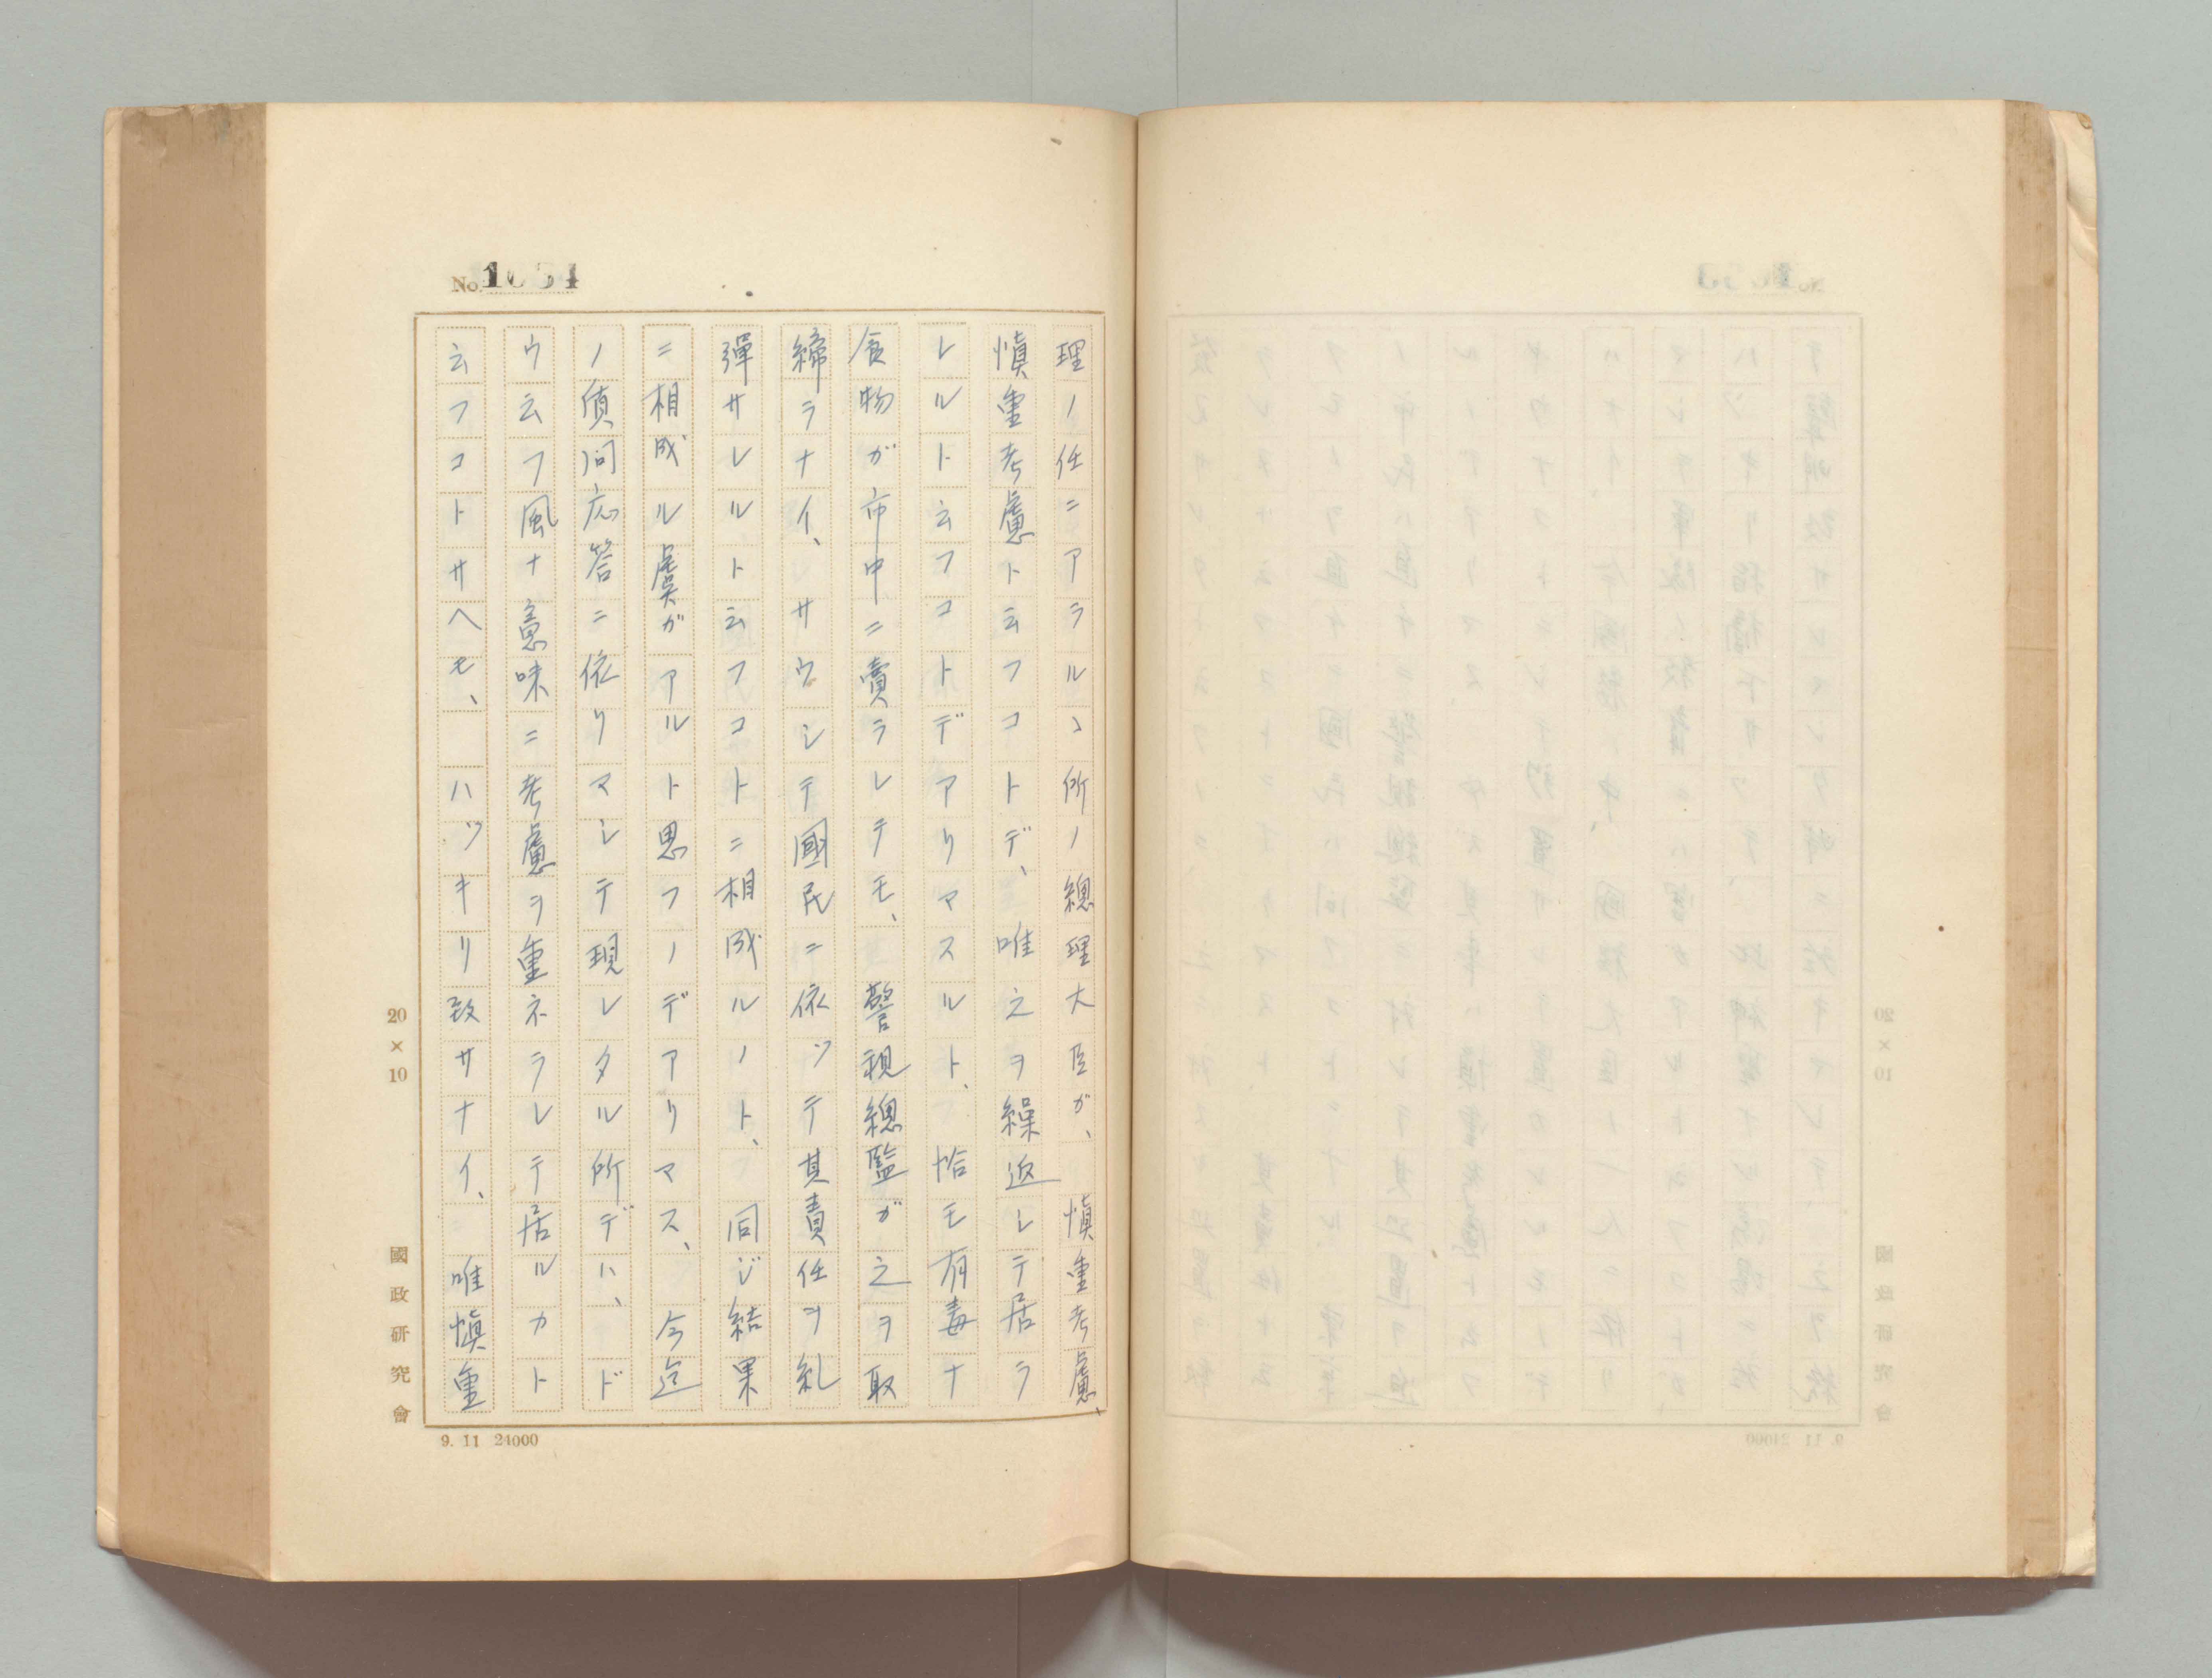 No. 1034
理ノ任ニアラルヽ所ノ總理大臣ガ、愼重考慮、
愼重考慮ト云フコトデ、唯之ヲ繰返シテ居ラ
レルト云フコトデアリマスルト、恰モ有毒ナ
食物ガ市中ニ賣ラレテモ、警視總監ガ之ヲ取
締ラナイ、サウシテ國民ニ依ッテ其責任ヲ糺
彈サレルト云フコトニ相成ルノト、同ジ結果
ニ相成ル虞ガアルト思フノデアリマス、今迄
ノ質問応答ニ依リマシテ現レタル所デハ、ド
ウ云フ風ナ意味ニ考慮ヲ重ネラレテ居ルカト
云フコトサヘモ、ハッキリ致サナイ、唯愼重
20×10
國政研究會
9. 11 24000